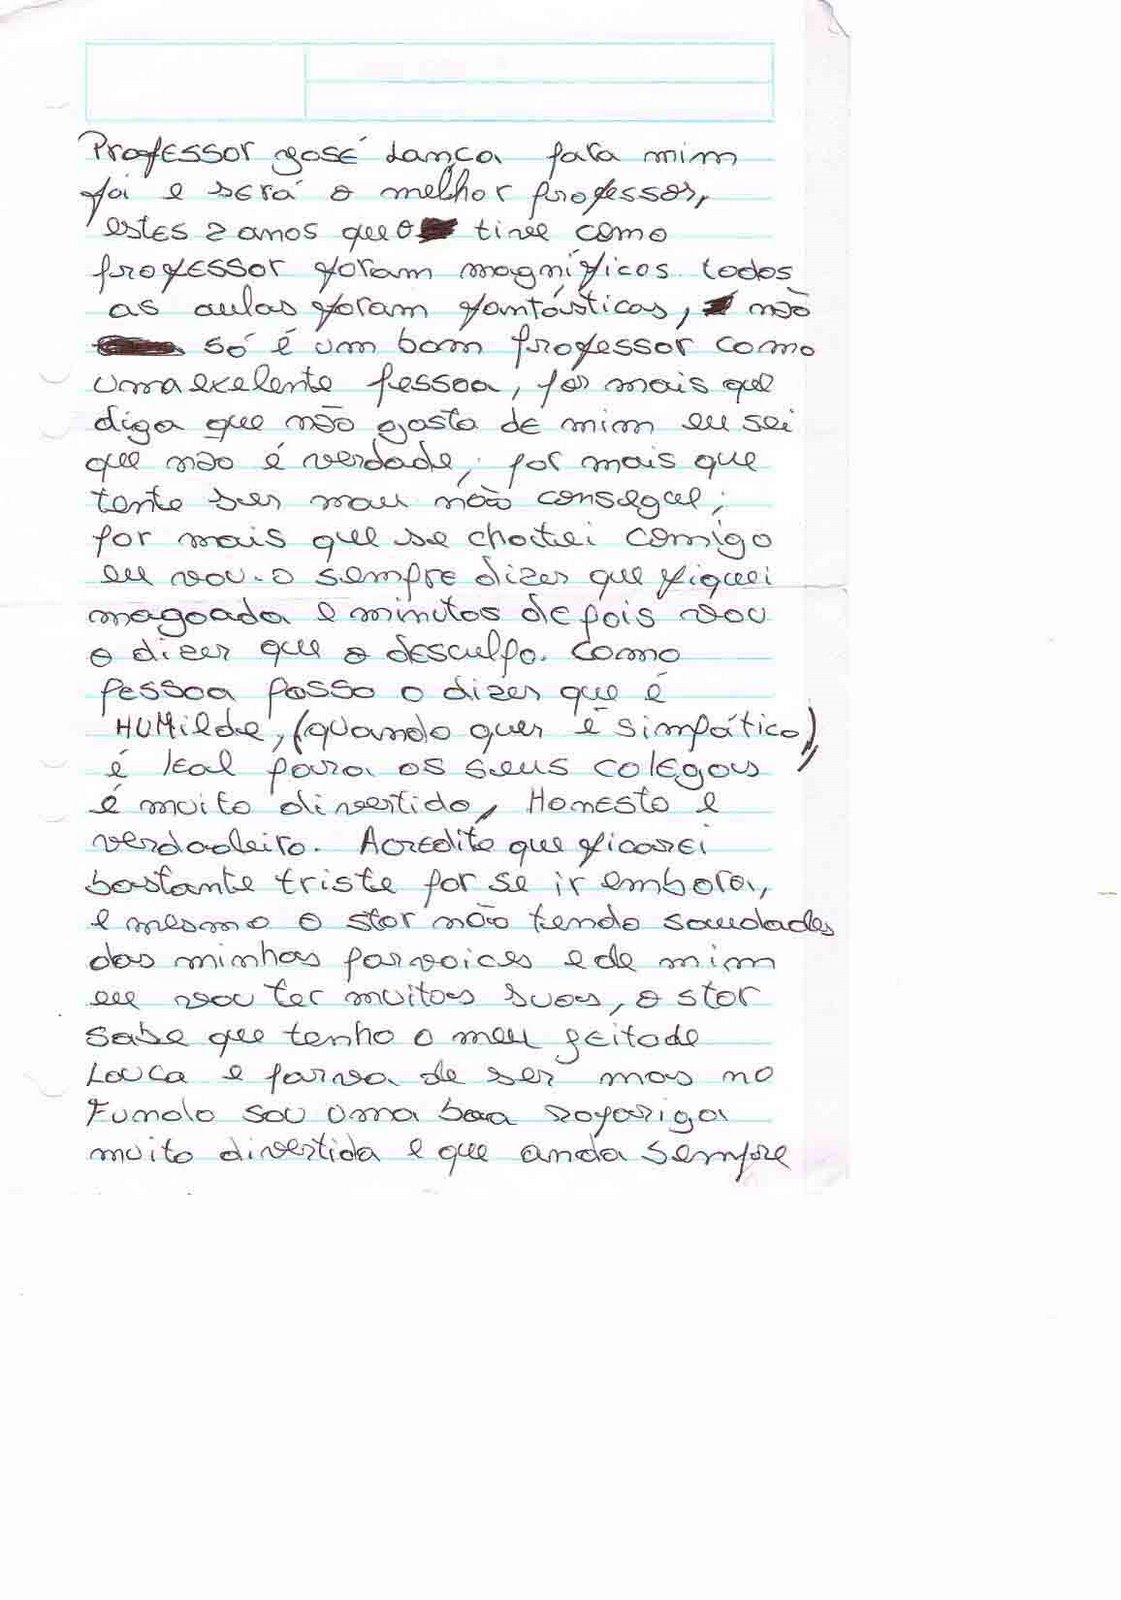 Professor José Lança para mim
foi e será o melhor professor,
estes 2 anos que o tive como
professor foram magníficos todos
as aulas foram fantásticas, não
só é um bom professor como
uma exelente pessoa, por mais que
diga que não gosta de mim eu sei
que não é verdade, por mais que
tente ser mau não consegue,
por mais que se chatei comigo
eu vou-o sempre dizer que fiquei
magoada e minutos depois vou
o dizer que o desculpo. Como
pessoa posso o dizer que é
HUMilde, (quando quer é simpático),
é leal para os seus colegas
é muito divertido, Honesto e
verdadeiro. Acredito que ficarei
bastante triste por se ir embora,
e mesmo o stor não tendo saudades
das minhas parvoices e de mim
eu vou ter muitas suas, o stor
sabe que tenho o meu geito de
Louca e parva de ser mas no
Fundo sou uma boa rapariga
muito divertida e que anda sempre